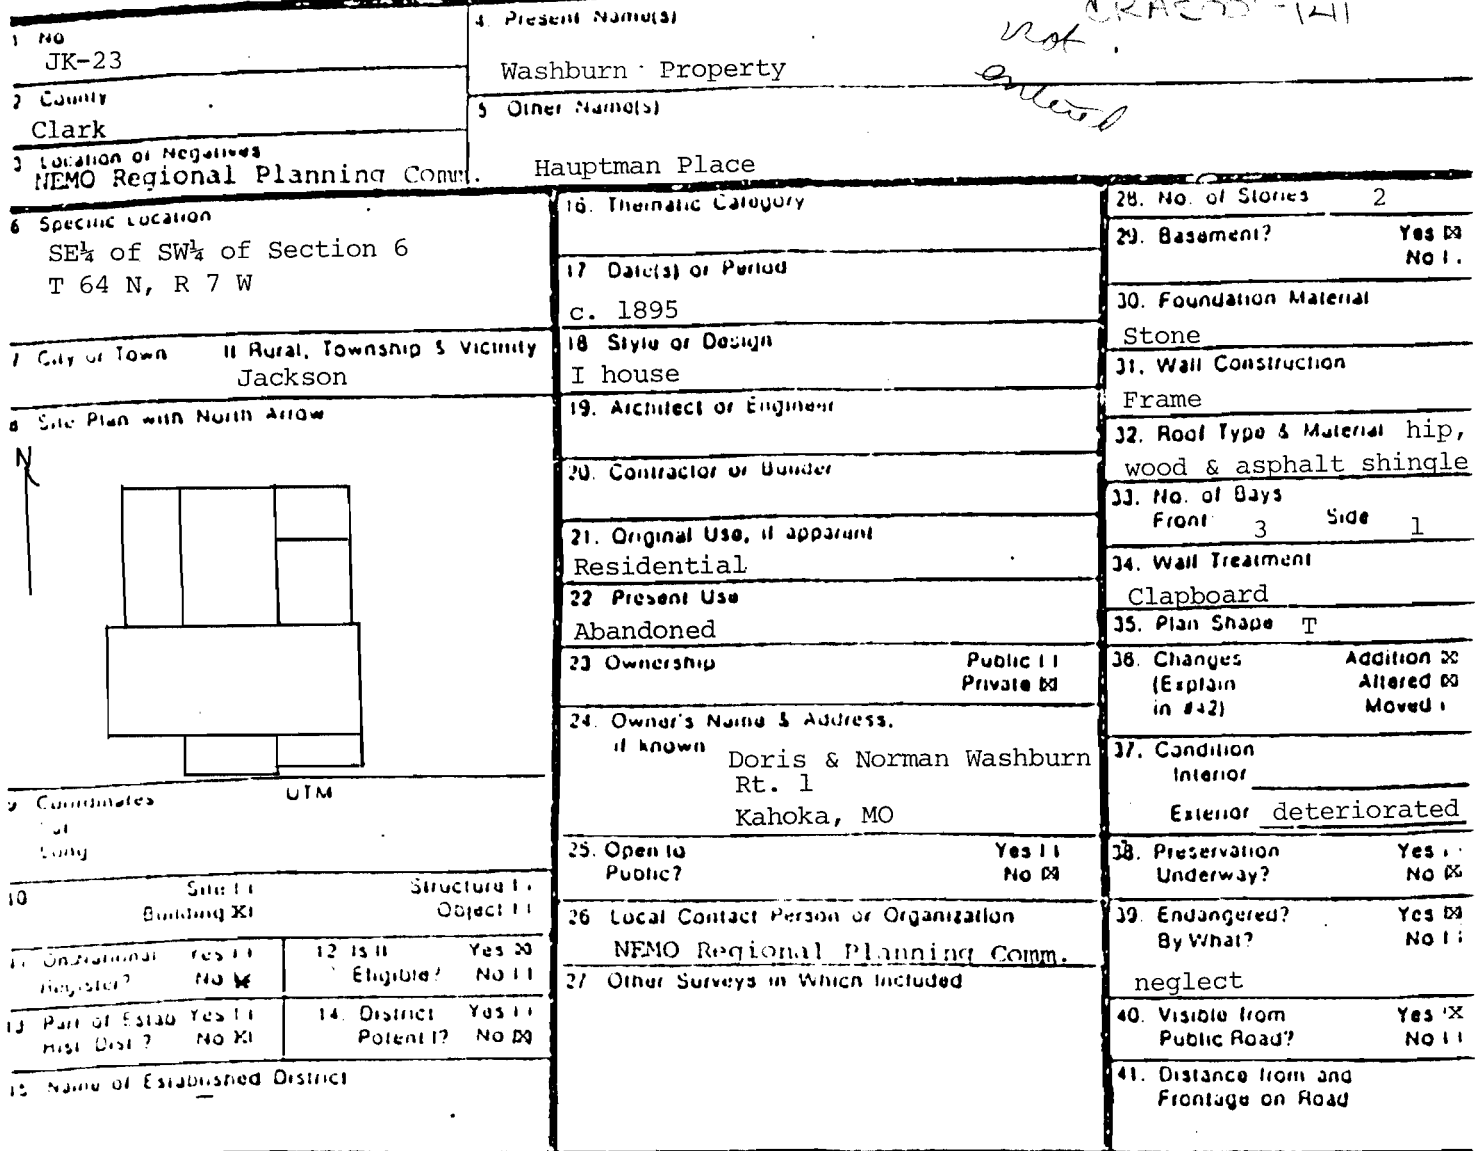 1 No
JK-23
2 County
Clark
3 Location of Negatives
NEMO Regional Planning Comm.
4. Present Name(s)
Washburn Property
5 Other Name(s)
Hauptman Place
Not
entered
6 Specific Location
SE¼ of SW¼ of Section 6
T 64 N, R 7 W
7 City or Town If Rural, Township & Vicinity
Jackson
8 Site Plan with North Arrow
N
9 Coordinates UTM
Lat
Long
10 Site Structure
Building X Object
11 On National Yes
Register? No X
12 Is It Yes X
Eligible? No
13 Part of Estab Yes
Hist. Dist.? No X
14. District Yes
Potent'l? No X
15 Name of Established District
16. Thematic Category
17 Date(s) or Period
c. 1895
18 Style or Design
I house
19. Architect or Engineer
20. Contractor or Builder
21. Original Use, if apparent
Residential
22 Present Use
Abandoned
23 Ownership Public
Private X
24. Owner's Name & Address,
if known
Doris & Norman Washburn
Rt. 1
Kahoka, MO
25. Open to Yes
Public? No X
26 Local Contact Person or Organization
NEMO Regional Planning Comm.
27 Other Surveys in Which Included
28. No. of Stories 2
29. Basement? Yes X
No
30. Foundation Material
Stone
31. Wall Construction
Frame
32. Roof Type & Material hip,
wood & asphalt shingle
33. No. of Bays
Front 3 Side 1
34. Wall Treatment
Clapboard
35. Plan Shape T
36. Changes Addition X
(Explain Altered X
in #42) Moved
37. Condition
Interior
Exterior deteriorated
38. Preservation Yes
Underway? No X
39. Endangered? Yes X
By What? No
neglect
40. Visible from Yes X
Public Road? No
41. Distance from and
Frontage on Road